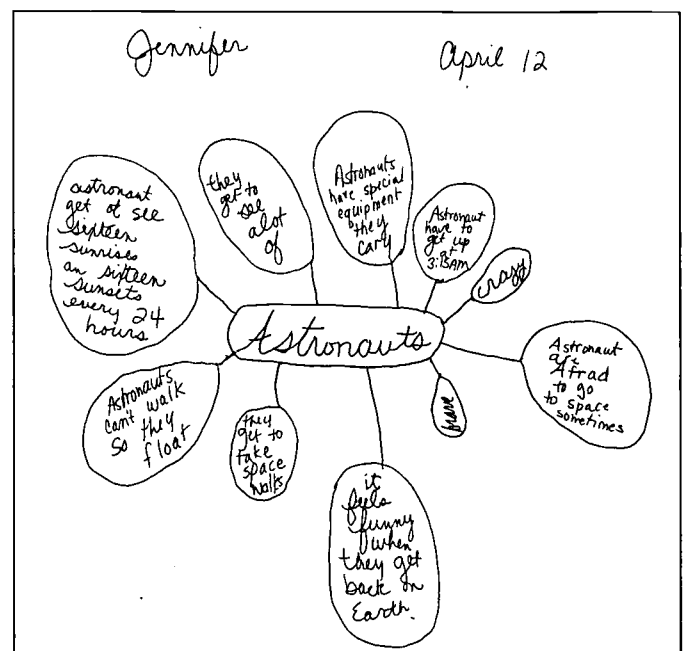 Jennifer
April 12
astronaut
get ot see
sixteen
sunrises
an sixteen
sunsets
every 24
hours
they
get to
see
alot
of
Astronauts
have special
equipment
they
cary
Astronaut
have to
get up
at
3:15AM
crazy
Astronauts
Astronaut
are
Afrad
to go
to space
sometimes
brave
it
feels
funny
when
they get
back on
Earth.
they
get to
take
space
walks
Astronauts
can't walk
so they
float